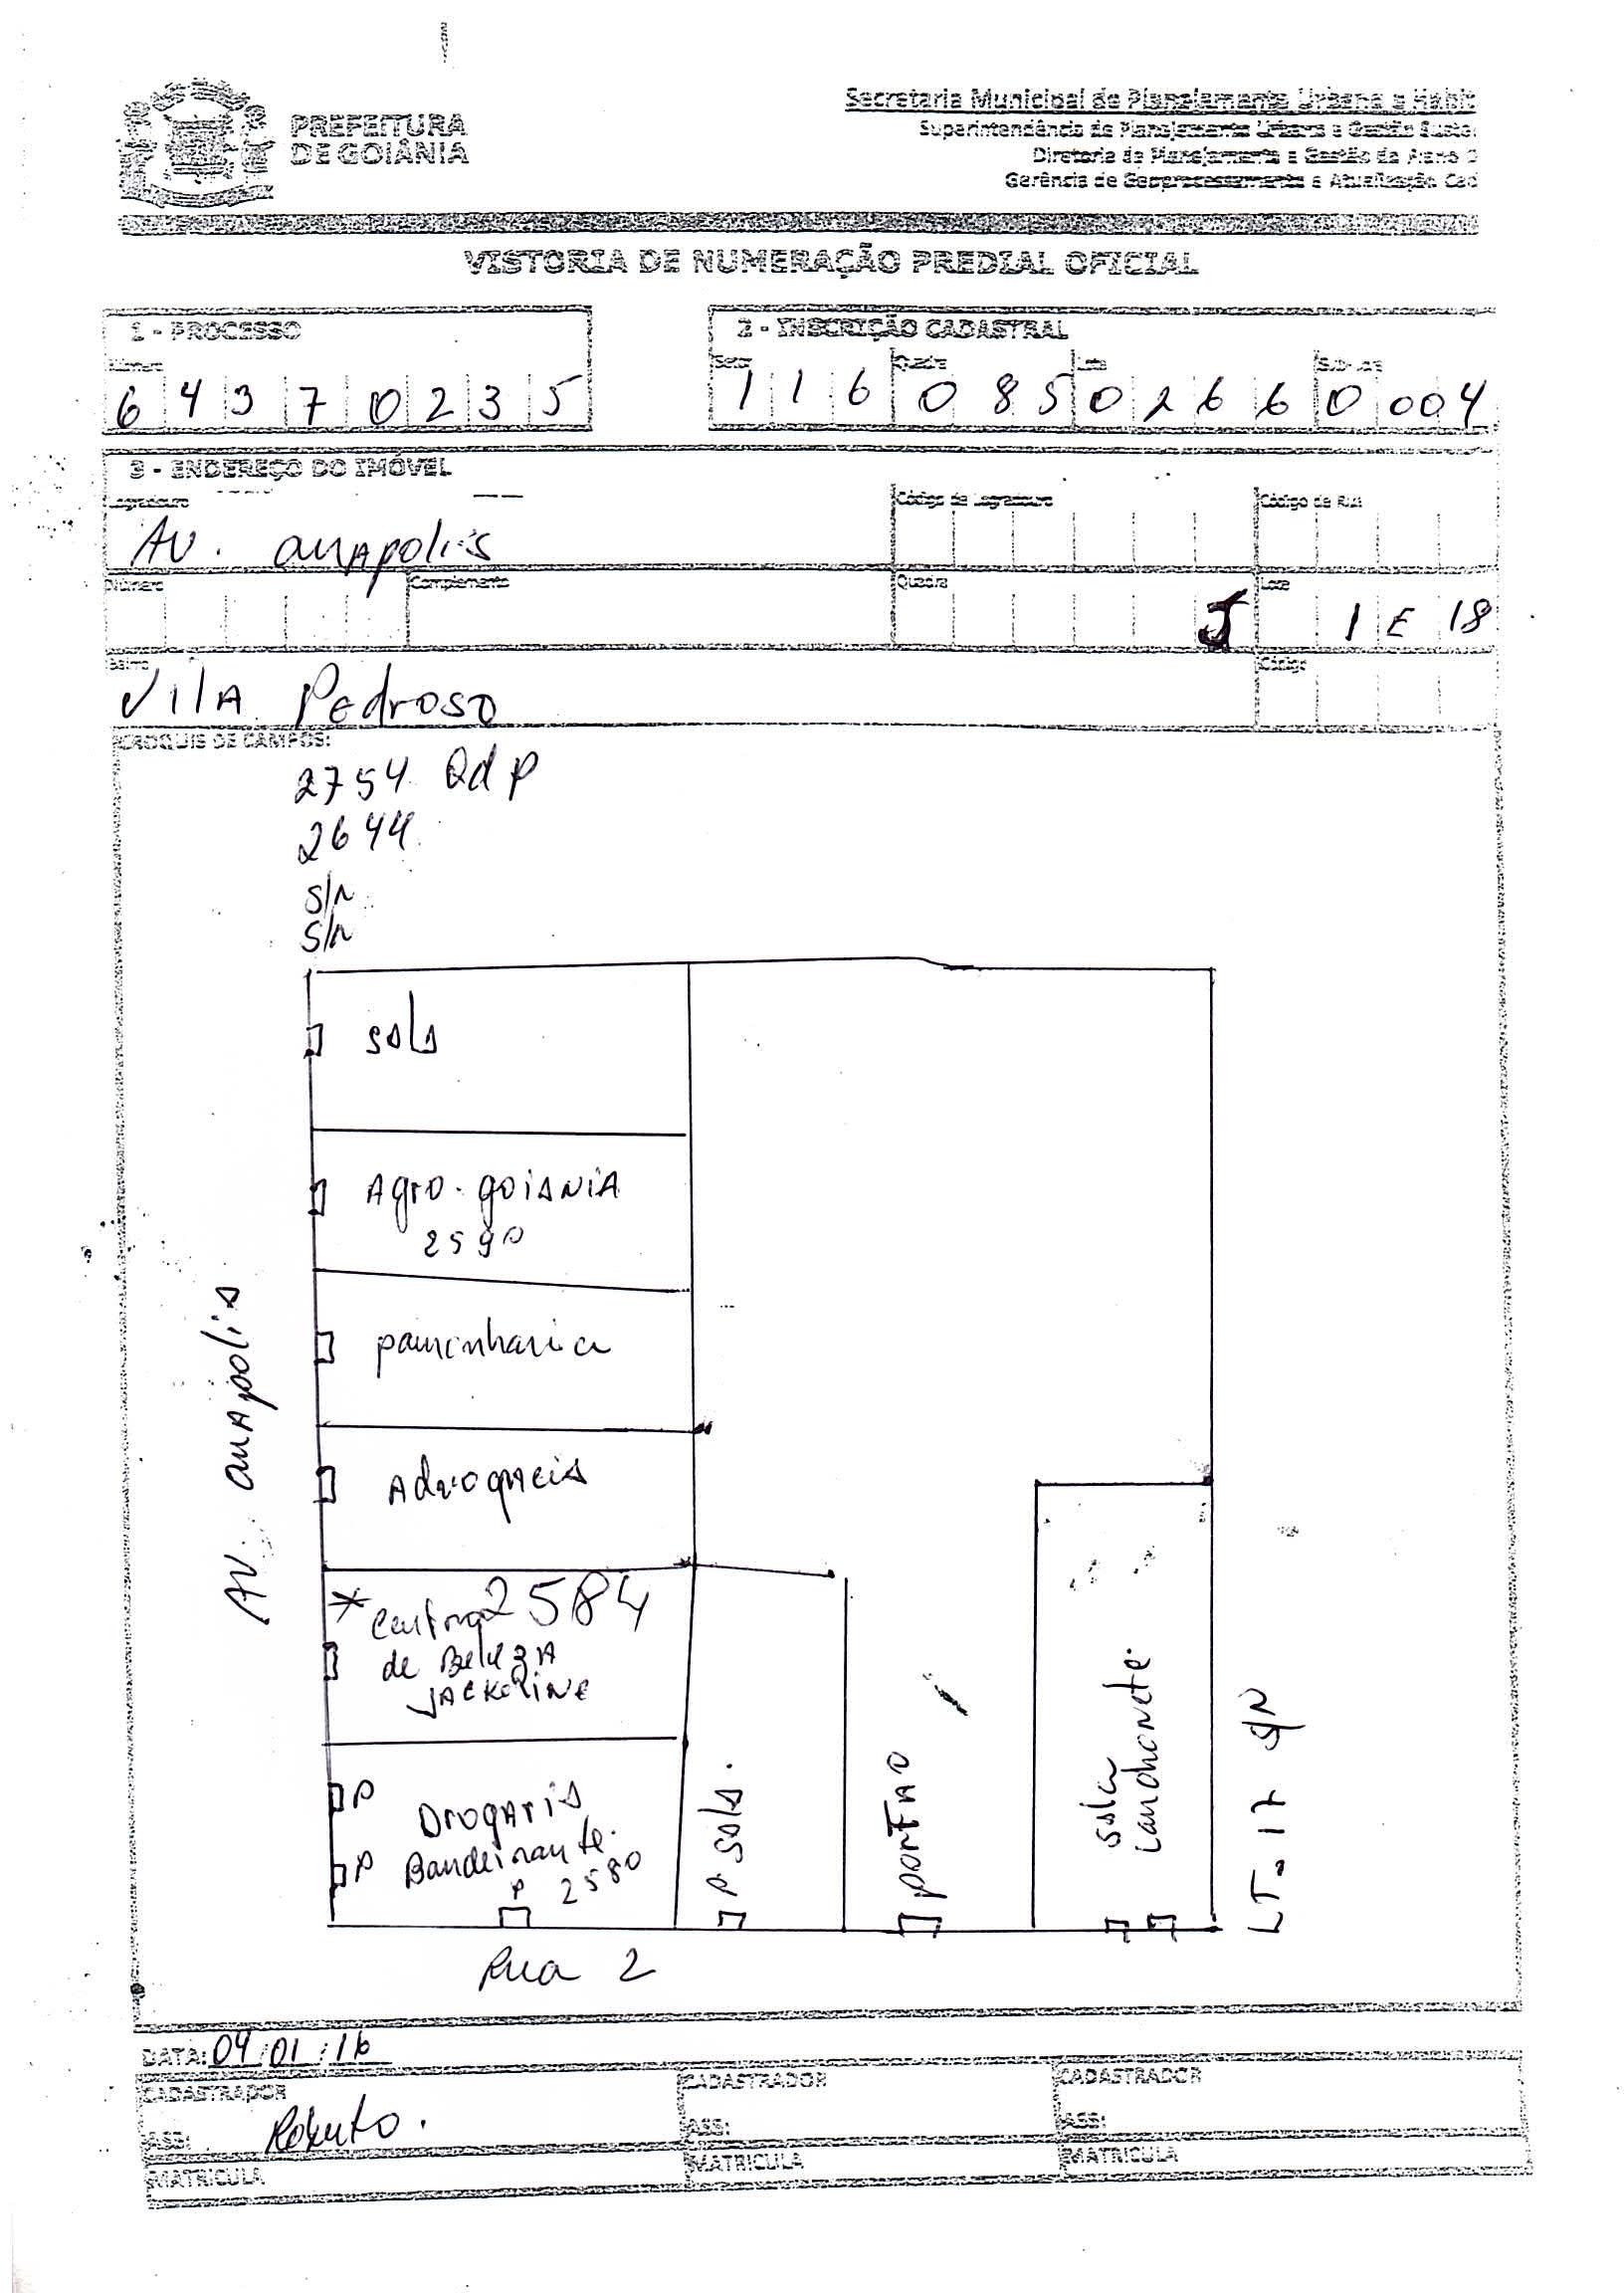 PREFEITURA
DE GOIÂNIA
Secretaria Municipal de Planejamento Urbano e Habit
Superintendência de Planejamento Urbano e Gestão Suste
Diretoria de Planejamento e Gestão do Plano D
Gerência de Geoprocessamento e Atualização Cad
VISTORIA DE NUMERAÇÃO PREDIAL OFICIAL
1 - PROCESSO
Número
6 4 3 7 0 2 3 5
2 - INSCRIÇÃO CADASTRAL
Setor Quadra Lote Sub-lote
1 1 6 0 8 5 0 2 6 6 0 004
3 - ENDEREÇO DO IMÓVEL
Logradouro Código de Logradouro Código da Rua
AV. anApolis
Número Complemento Quadra Lote
J 1 E 18
Bairro Código
VilA Pedroso
CROQUIS DE CAMPOS:
2754 Qd P
2644
S/N
S/N
sala
Agro. goiANiA
2590
pamonharia
Advogacia
* Centro 2584
de BelezA
JACKELINE
P
P
DrogAria
Bandeirante.
P 2580
P sala.
portão
sala
lanchonete.
LT. 17 S/N
AV. anApolis
Rua 2
DATA: 04/01/16
CADASTRADOR CADASTRADOR CADASTRADOR
ASS: Roberto. ASS: ASS:
MATRICULA MATRICULA MATRICULA